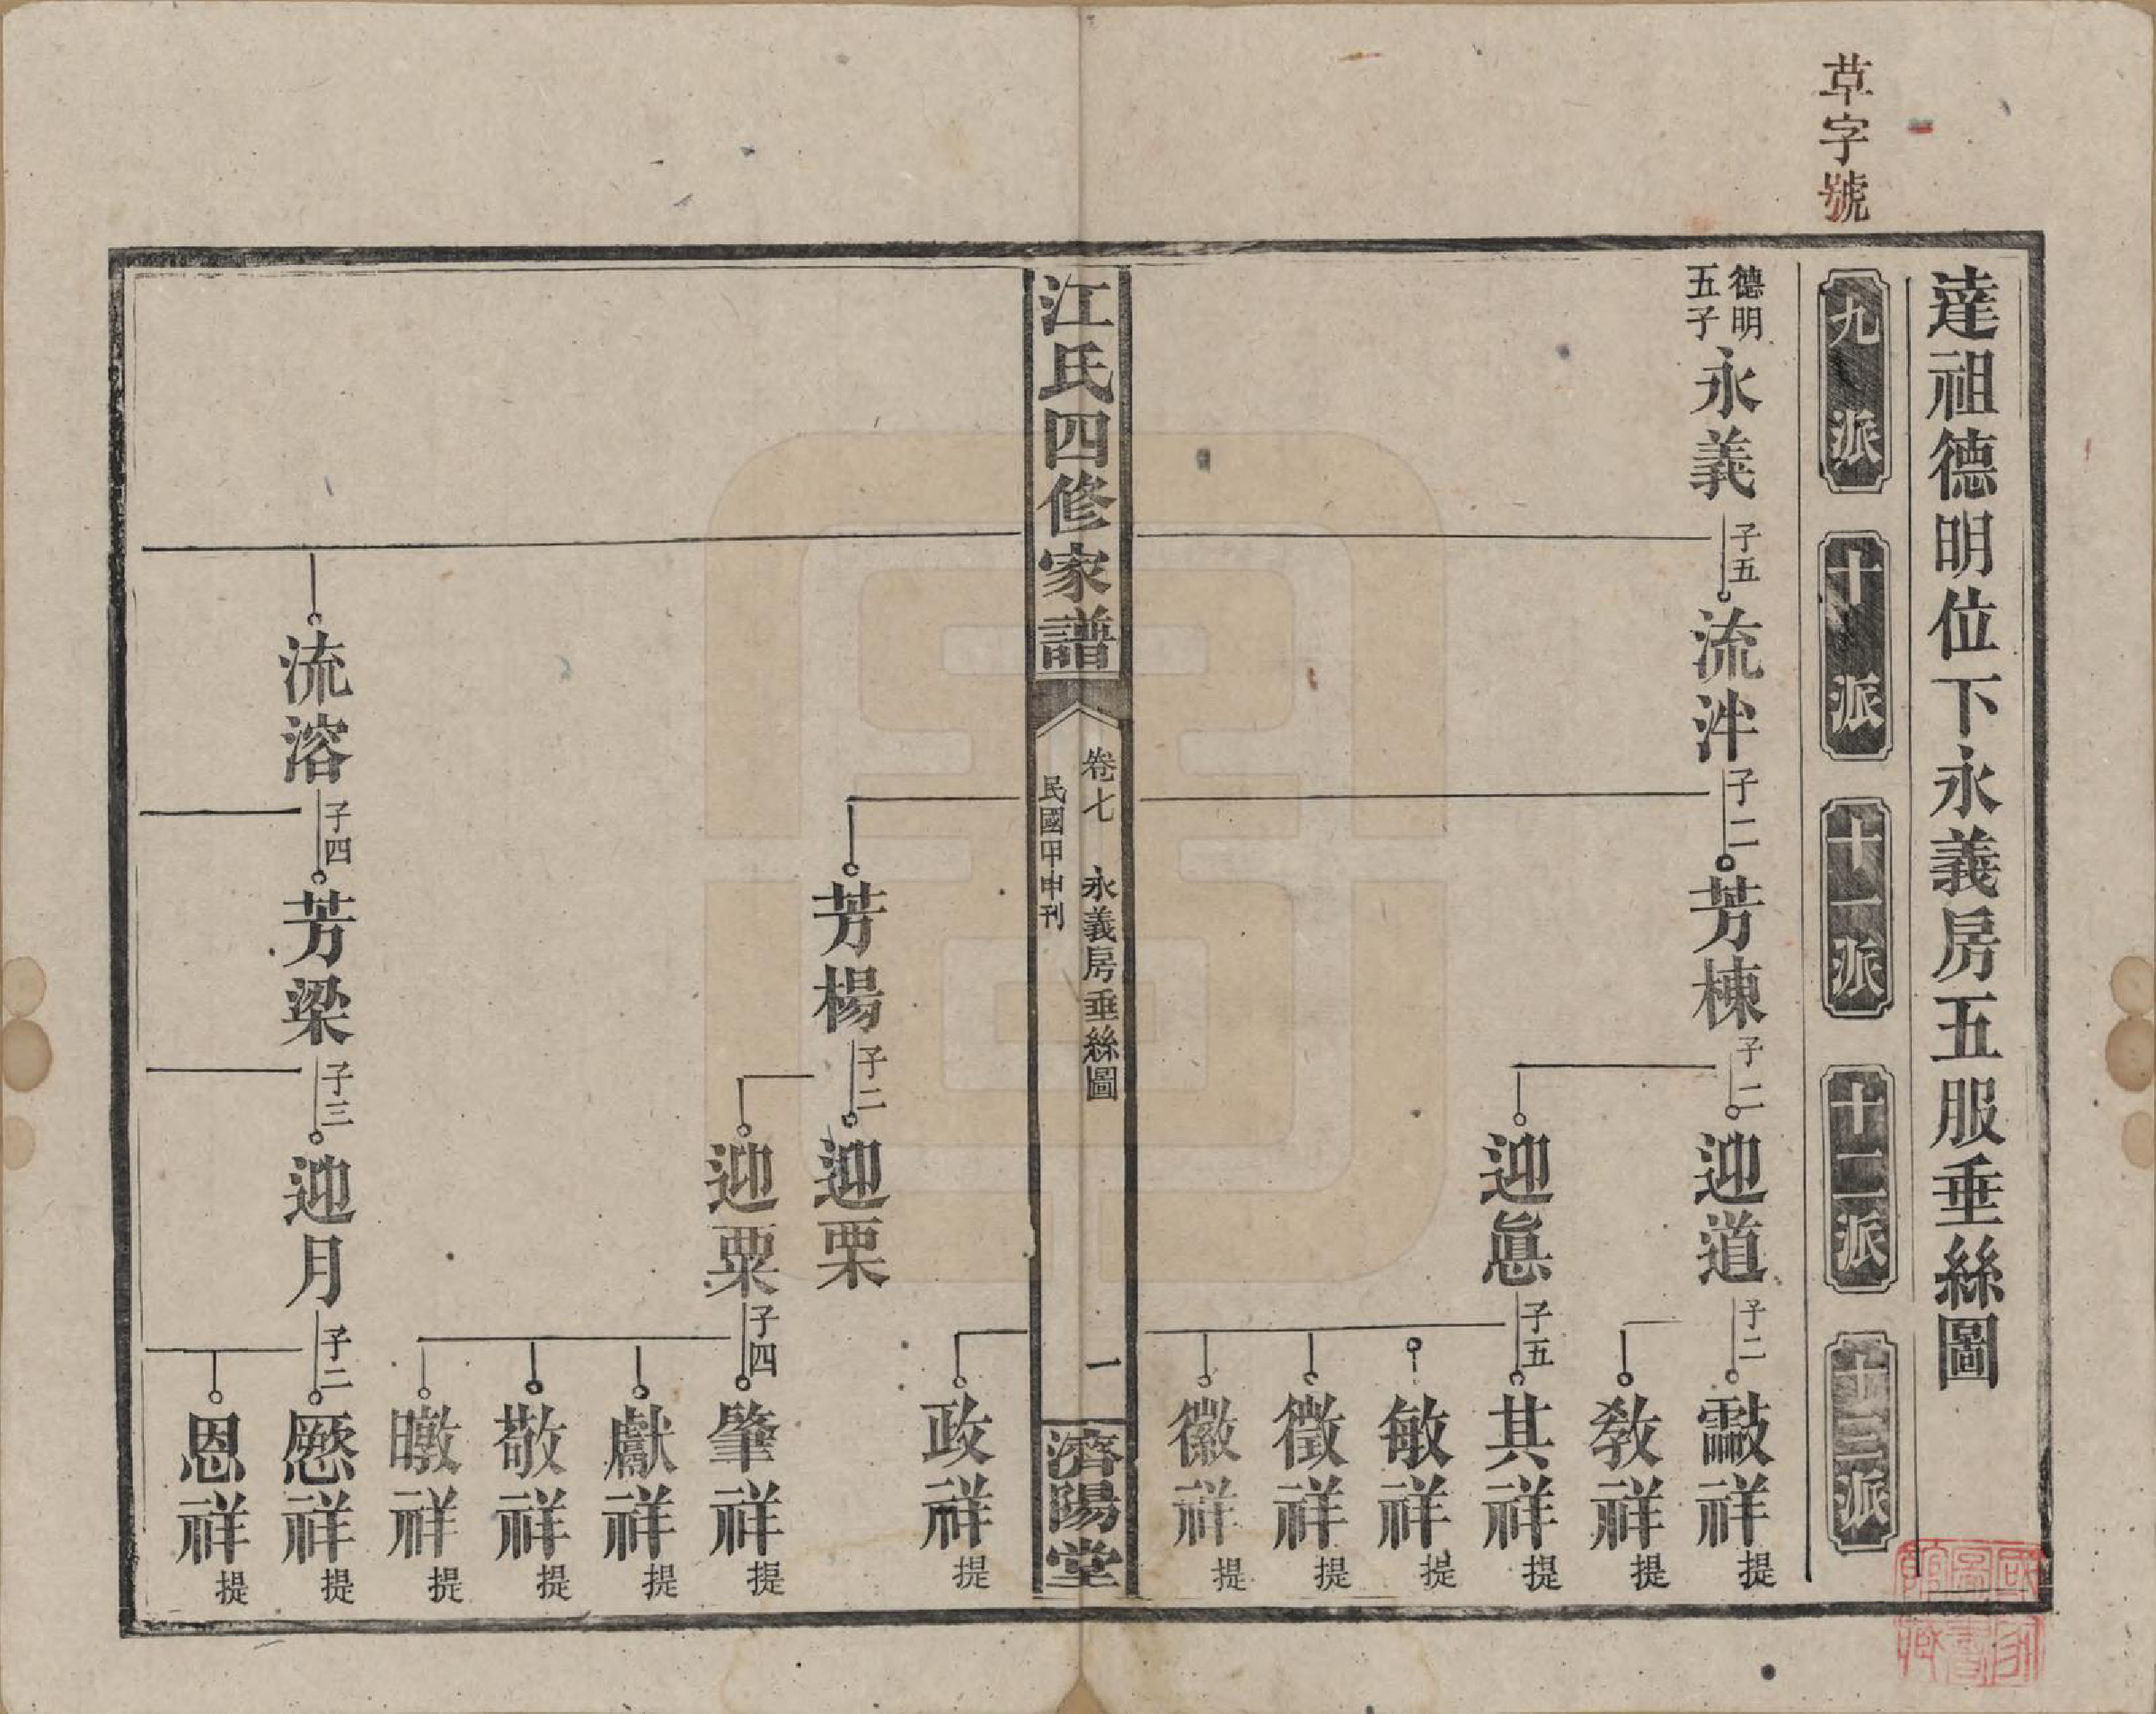 草字號
達祖德明位下永義房五服垂絲圖
九派
十派
十一派
十二派
十三派
德明
五子
永義
子五
流泮
子二
芳棟
子二
迎道
子二
敎祥提
迎眞
子五
其祥提
敏祥提
徵祥提
徽祥提
江氏四修家譜
卷七 永義房垂絲圖
民國甲申刊
一
濟陽堂
政祥提
芳楊
子二
迎栗
迎粟
子四
肇祥提
獻祥提
敬祥提
暾祥提
流溶
子四
芳梁
子三
迎月
子二
愿祥提
恩祥提
國家圖書館藏